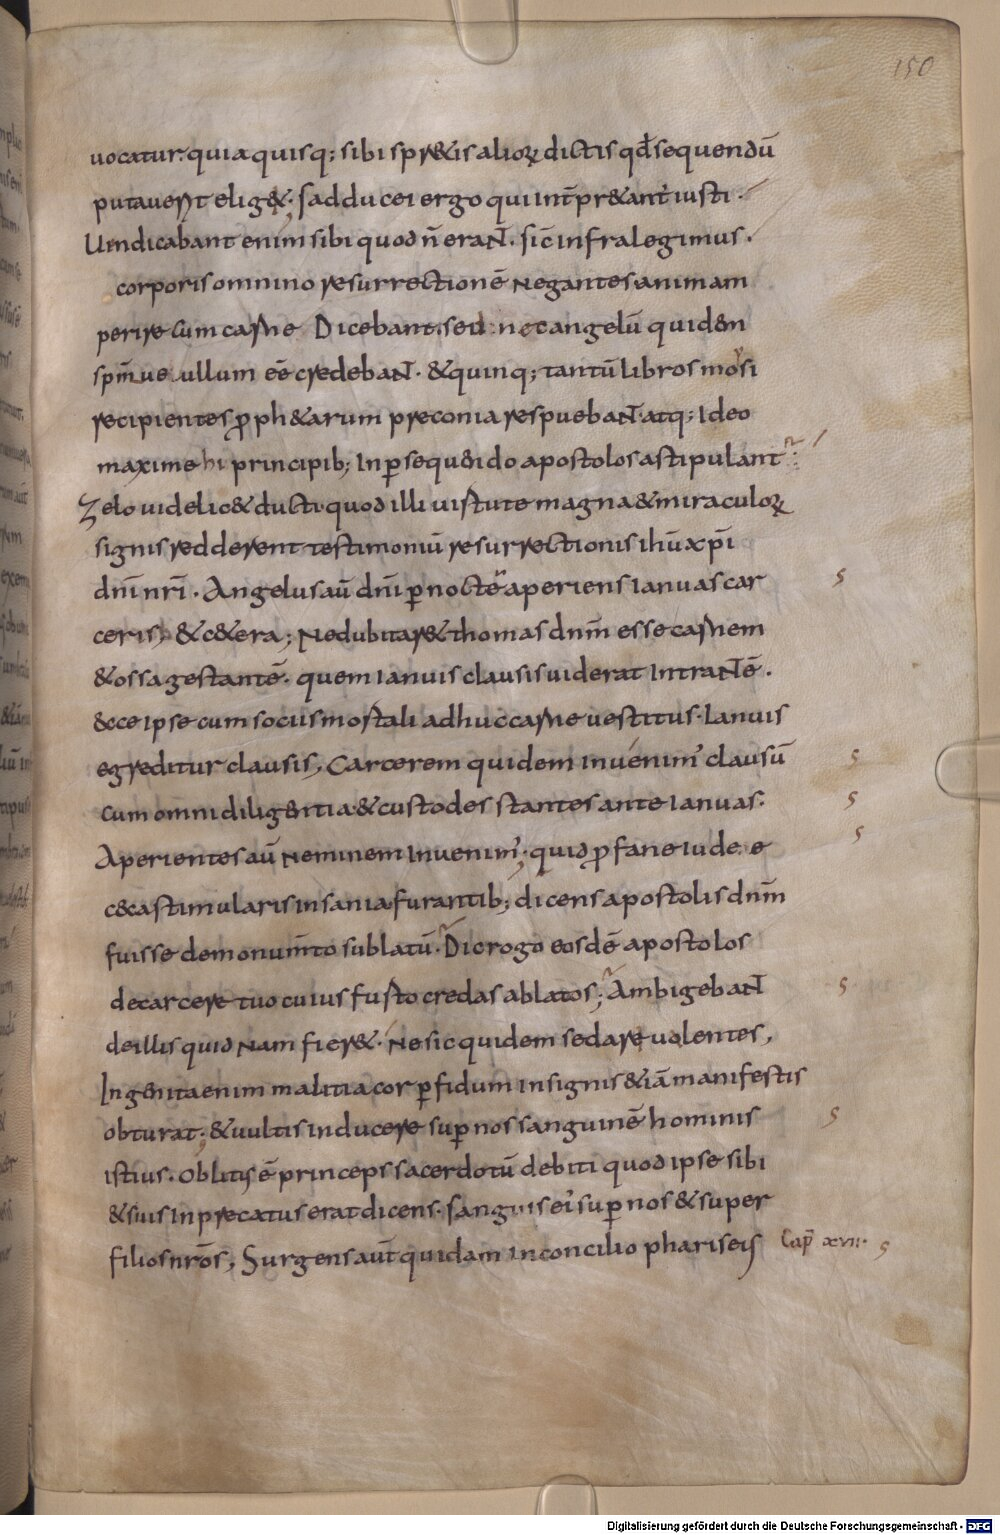 150
uocatur. quia quisq; sibi spr&is alioꝝ dictis qd̄ sequendū
putauerit elig&. sadducei ergo qui int̄pr&ant̄ iusti.
Uendicabant enim sibi quod n̄ eraNT. sic̄ infra legimus.
corporis omnino resurrectionē negantes animam
perire cum carne Dicebant. sed nec angelū quidem
sp̄mue ullum eē credebaNT. & quinq; tantū libros moysi
recipientes ꝓph&arum preconia respuebaNT. atq; Ideo
maxime hi principib; In ꝑsequendo apostolos astipulant̄:
Zelo uidelic& ducti. quod illi uirtute magna & miraculoꝝ
signis redderent testimoniū resurrectionis ih̄u xp̄i
dn̄i nr̄i. Angelus aū dn̄i ꝑ noctē aperiens Ianuas car
ceris, & c&era; Ne dubitar& thomas dn̄m esse carnem
& ossa gestantē. quem Ianuis clausis uiderat IntraNTē.
&cce ipse cum sociis mortali adhuc carne uestitus. Ianuis
egreditur clausis, Carcerem quidem inuenim' clausū
cum omni diligentia & custodes stantes ante Ianuas.
Aperientes aū Neminem Inuenim'. quid ꝓfane iudee
c&ca stimularis insania. furantib; dicens apostolis dn̄m
fuisse de monum̄to sublatū. Dic rogo eosdē apostolos
de carcere tuo cuius furto credas ablatos; AmbigebaNT
de illis quid Nam fier&. Ne sic quidem sedare uolentes,
Ingenita enim malitia cor ꝑfidum in signis &iā manifestis
obturat. & uultis inducere suꝑ nos sanguinē hominis
istius. Oblitus ē princeps sacerdotū debiti quod ipse sibi
& suis Inprecatus erat dicens. sanguis ei' suꝑ nos & super
filios nr̄os, Surgens aūt quidam in concilio phariseus Cap̄ xvii.